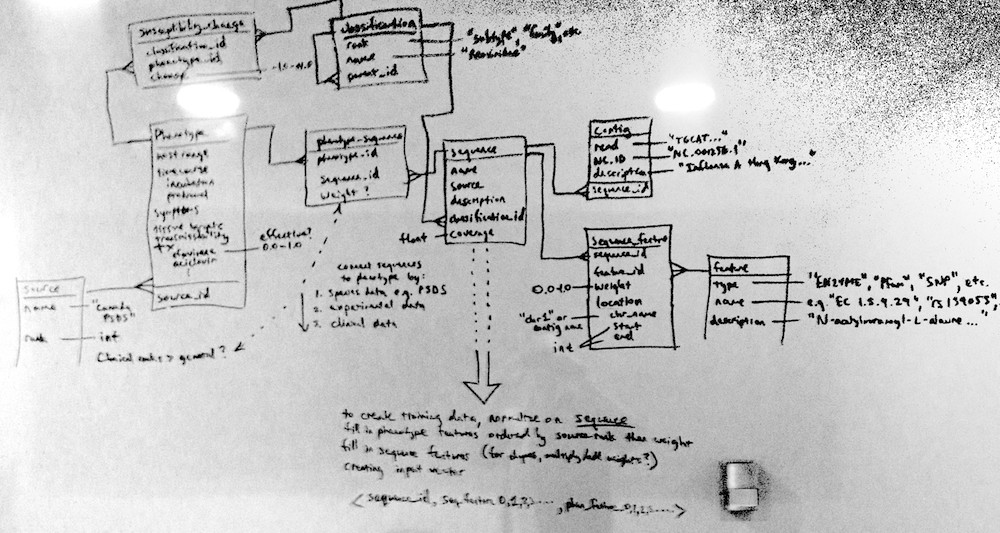 susceptibility_change
classification_id
phenotype_id
change
classification
rank
name
parent_id
"subtype", "family", etc
Phenotype
host range
time course
incubation
prodromal
symptoms
transmissibility
tx
source_id
effective?
0.0-1.0
phenotype-sequence
phenotype_id
sequence_id
weight?
sequence
name
source
description
classification_id
coverage
float
Contig
read
NC.ID
description
sequence_id
"TGCAT..."
"Influenza A Hong Kong..."
sequence_feature
sequence_id
feature_id
weight
location
chr_name
start
end
0.0-1.0
"chr1" or
contig name
int
feature
type
name
description
"ENZYME", "Pfam", "SNP", etc.
e.g. "EC 1.5.9.29", "rs139053"
Source
name
rank
"Canada
PSDS"
int
Clinical ranks > general?
connect sequences
to phenotype by:
1. species data e.g. PSDS
2. experimental data
3. clinical data
to create training data, normalize on sequence
fill in phenotype features ordered by source rank then weight
fill in sequence features (for dupes, multiply weights?)
creating input vector